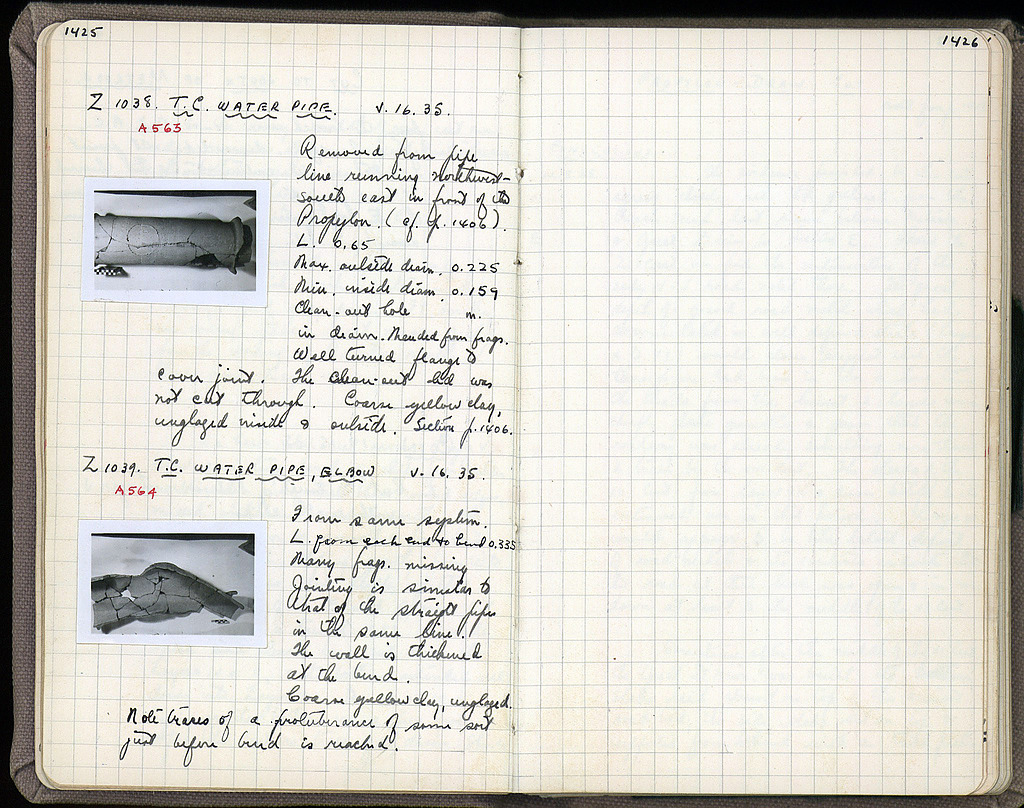 1425
Z 1038. T.C. WATER PIPE. V. 16. 35.
A 563
Removed from pipe
line running northwest-
south east in front of the
Propylon. (cf. p. 1406).
L. 0.65
Max. outside diam. 0.225
Min. inside diam. 0.159
Clean-out hole m.
in diam. Mended from frags.
Well turned flange to
cover joint. The clean-out lid was
not cut through. Coarse yellow clay,
unglazed inside & outside. Section p. 1406.
Z 1039. T.C. WATER PIPE, ELBOW V. 16. 35.
A 564
From same system.
L. from each end to bend 0.335
Many frags. missing
Jointing is similar to
that of the straight pipes
in the same line.
The wall is thickened
at the bend.
Coarse yellow clay, unglazed.
Note traces of a protuberance of some sort
just before bend is reached.
1426